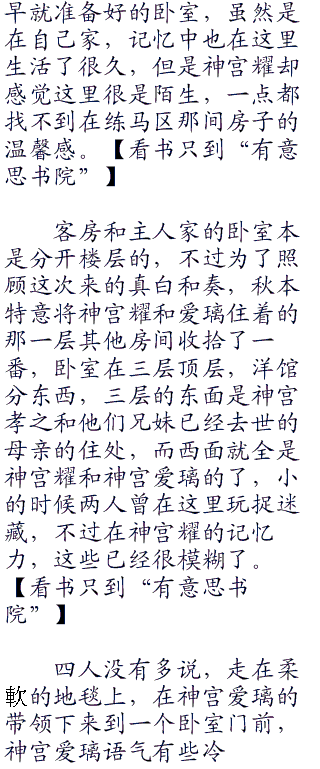 早就准备好的卧室，虽然是
在自己家，记忆中也在这里
生活了很久，但是神宫耀却
感觉这里很是陌生，一点都
找不到在练马区那间房子的
温馨感。【看书只到“有意
思书院”】
客房和主人家的卧室本
是分开楼层的，不过为了照
顾这次来的真白和奏，秋本
特意将神宫耀和爱璃住着的
那一层其他房间收拾了一
番，卧室在三层顶层，洋馆
分东西，三层的东面是神宫
孝之和他们兄妹已经去世的
母亲的住处，而西面就全是
神宫耀和神宫爱璃的了，小
的时候两人曾在这里玩捉迷
藏，不过在神宫耀的记忆
力，这些已经很模糊了。
【看书只到“有意思书
院”】
四人没有多说，走在柔
軟的地毯上，在神宫爱璃的
带领下来到一个卧室门前，
神宫爱璃语气有些冷